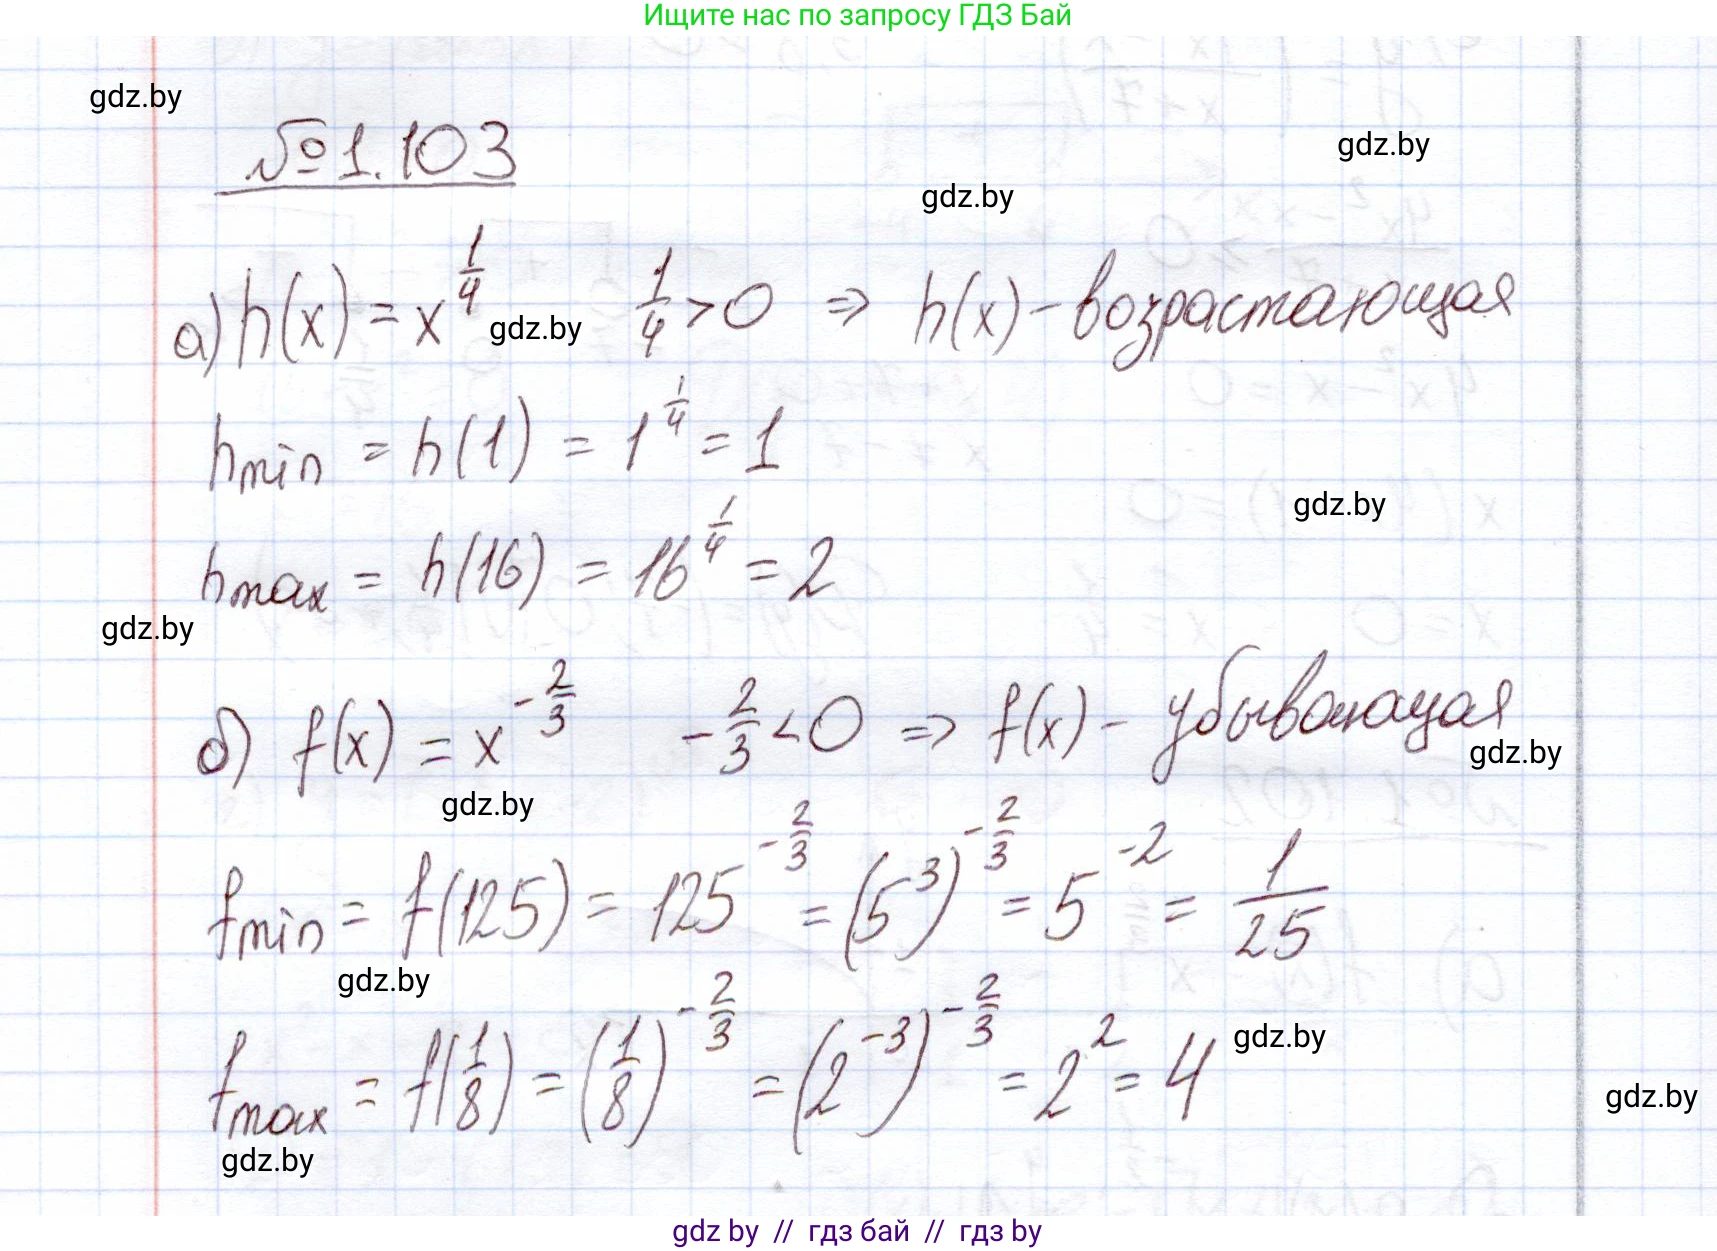 Ищите нас по запросу ГДЗ Бай
gdz.by
№1.103
gdz.by
gdz.by
а) h(x) = x^{1/4} 1/4 > 0 ⇒ h(x) - возрастающая
gdz.by
h_{min} = h(1) = 1^{1/4} = 1
gdz.by
h_{max} = h(16) = 16^{1/4} = 2
gdz.by
б) f(x) = x^{-2/3} -2/3 < 0 ⇒ f(x) - убывающая
gdz.by
gdz.by
f_{min} = f(125) = 125^{-2/3} = (5^3)^{-2/3} = 5^{-2} = 1/25
gdz.by
f_{max} = f(1/8) = (1/8)^{-2/3} = (2^{-3})^{-2/3} = 2^2 = 4
gdz.by
gdz.by
gdz.by
gdz by // гдз бай // гдз by